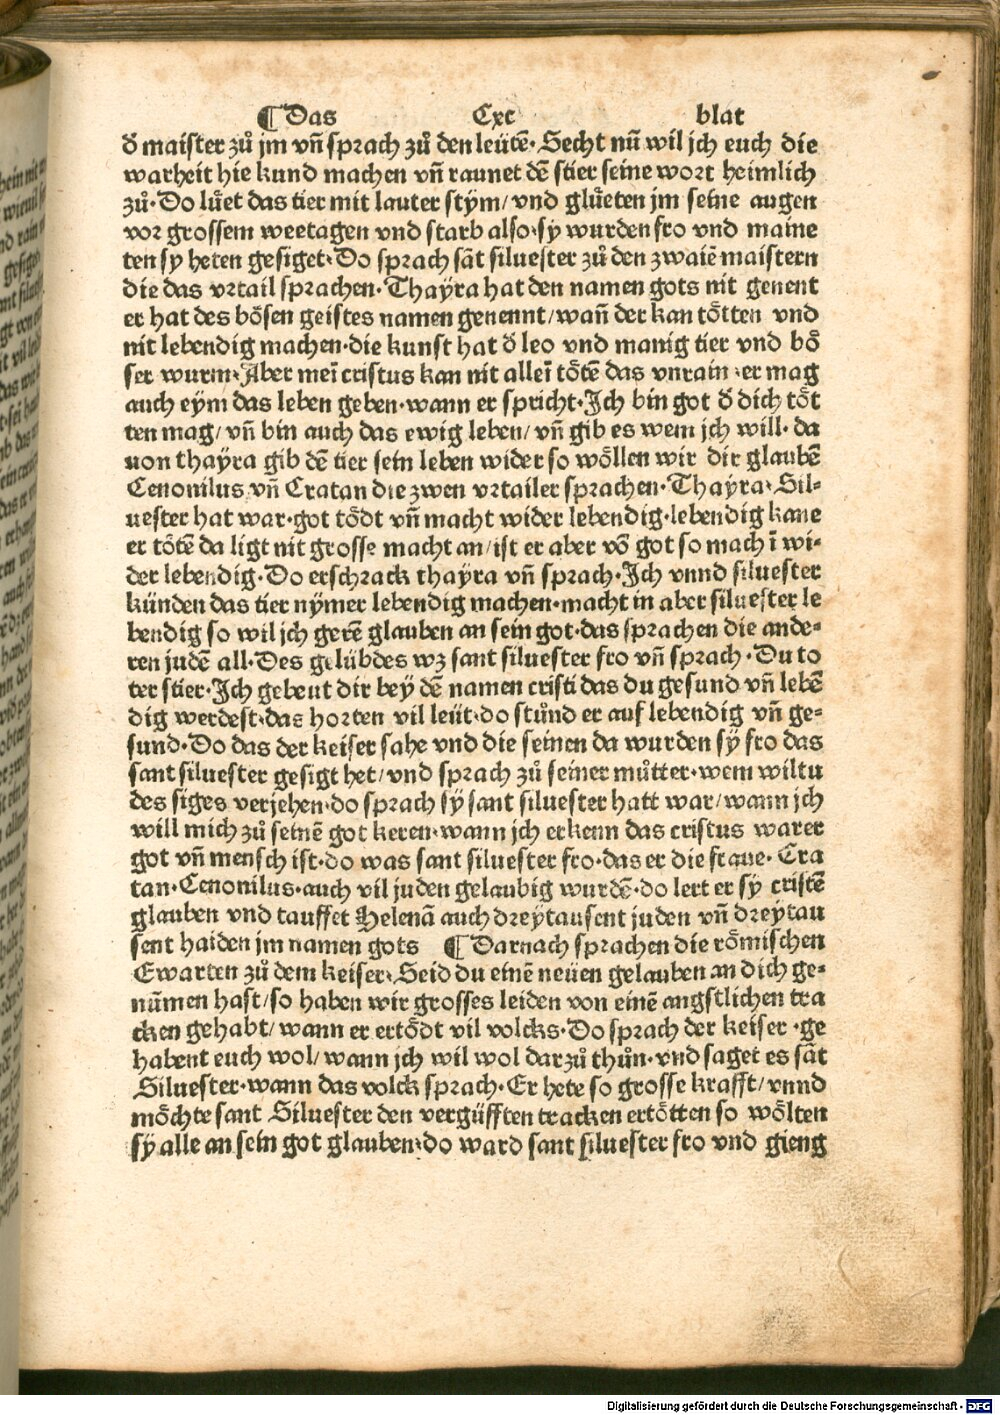 ¶ Das Cxc blat
d̕ maister zuͦ jm vn̄ sprach zuͦ den leütē. Secht nū wil jch euch die
warheit hie kund machen vn̄ raunet dē stier seine wort heimlich
zuͦ. Do lüͤet das tier mit lauter stym/ vnd glüͤeten jm seine augen
vor grossem weetagen vnd starb also. sy wurden fro vnd maine
ten sy heten gesiget. Do sprach sāt siluester zuͦ den zwaiē maistern
die das vrtail sprachen. Thayra hat den namen gots nit genent
er hat des bösen geistes namen genennt/ wan̄ der kan tötten vnd
nit lebendig machen. die kunst hat d̕ leo vnd manig tier vnd bö
ser wurm. Aber meī cristus kan nit alleī tötē das vnrain. er mag
auch eym das leben geben. wann er spricht. Ich bin got d̕ dich töt
ten mag/ vn̄ bin auch das ewig leben/ vn̄ gib es wem jch will. da
uon thayra gib dē tier sein leben wider so wöllen wir dir glaubē
Cenonilus vn̄ Cratan die zwen vrtailer sprachen. Thayra. Sil⸗
uester hat war. got tödt vn̄ macht wider lebendig. lebendig kane
er tötē da ligt nit grosse macht an/ ist er aber vō got so mach ī wi⸗
der lebendig. Do erschrack thayra vn̄ sprach. Ich vnnd siluester
künden das tier nymer lebendig machen. macht in aber siluester le
bendig so wil jch gerē glauben an sein got. das sprachen die ande⸗
ren judē all. Des gelübdes wz sant siluester fro vn̄ sprach. Du to
ter stier. Ich gebeut dir bey dē namen cristi das du gesund vn̄ lebē
dig werdest. das horten vil leüt. do stuͦnd er auf lebendig vn̄ ge⸗
sund. Do das der keiser sahe vnd die seinen da wurden sy fro das
sant siluester gesigt het/ vnd sprach zuͦ seiner muͦtter. wem wiltu
des siges verjehen. do sprach sy sant siluester hatt war/ wann jch
will mich zuͦ seinē got keren. wann jch erkenn das cristus warer
got vn̄ mensch ist. do was sant siluester fro. das er die fraue. Cra
tan. Cenonilus. auch vil juden gelaubig wurdē. do lert er sy cristē
glauben vnd tauffet Helenā auch dreytausent juden vn̄ dreytau
sent haiden jm namen gots ¶ Darnach sprachen die römischen
Ewarten zuͦ dem keiser. Seid du einē neüen gelauben an dich ge⸗
nūmen hast/ so haben wir grosses leiden von einē angstlichen tra
cken gehabt/ wann er ertödt vil volcks. Do sprach der keiser. ge
habent euch wol/ wann jch wil wol darzuͦ thuͦn. vnd saget es sāt
Siluester. wann das volck sprach. Er hete so grosse krafft/ vnnd
möchte sant Siluester den vergüfften tracken ertötten so wölten
sy alle an sein got glauben. do ward sant siluester fro vnd gieng
Digitalisierung gefördert durch die Deutsche Forschungsgemeinschaft - DFG